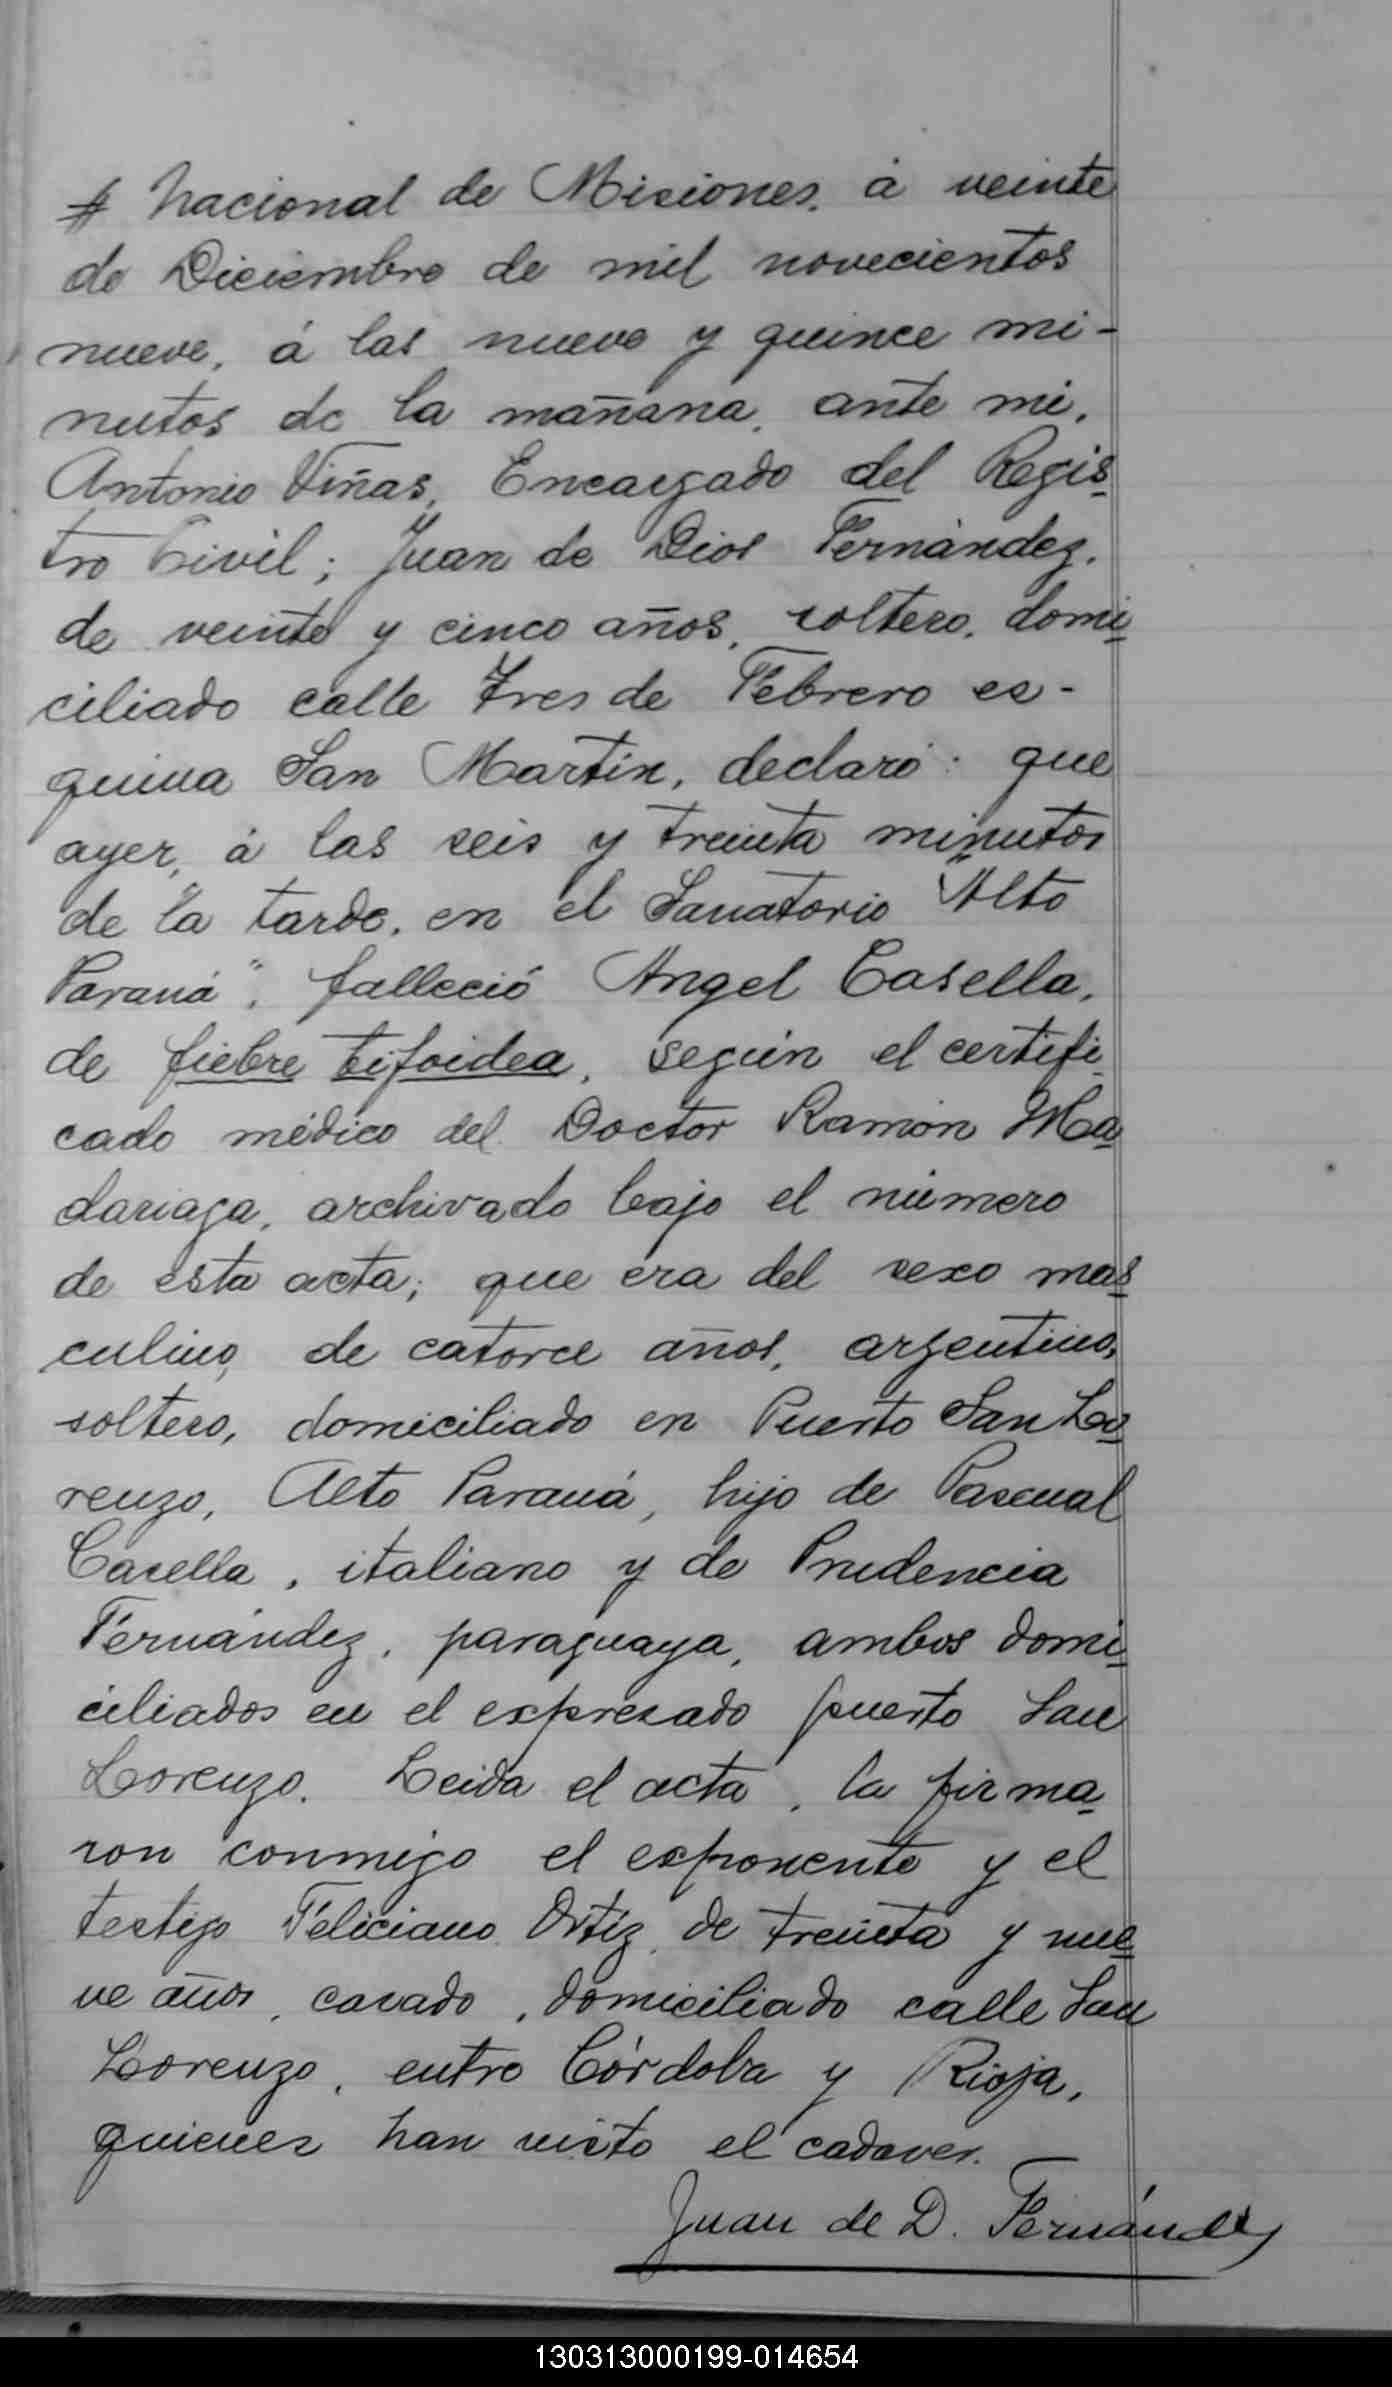 # Nacional de Misiones, á veinte
de Diciembre de mil novecientos
nueve, á las nueve y quince mi-
nutos de la mañana, ante mi,
Antonio Viñas, Encargado del Regis
tro Civil; Juan de Dios Fernández,
de veinte y cinco años, soltero, domi
ciliado calle Tres de Febrero es-
quina San Martín, declaró: que
ayer, á las seis y treinta minutos
de la tarde, en el Sanatorio "Alto
Paraná", falleció Angel Casella,
de fiebre tifoidea, según el certifi
cado médico del Doctor Ramón Ma
dariaga, archivado bajo el número
de esta acta; que era del sexo mas
culino, de catorce años, argentino,
soltero, domiciliado en Puerto San Lo
renzo, Alto Paraná, hijo de Pascual
Casella, italiano y de Prudencia
Fernández, paraguaya, ambos domi
ciliados en el expresado puerto San
Lorenzo. Leida el acta, la firma
ron conmigo el exponente y el
testigo Feliciano Ortíz, de treinta y nue
ve años, casado, domiciliado calle San
Lorenzo, entre Córdoba y Rioja,
quienes han visto el cadaver.
Juan de D. Fernández
130313000199-014654